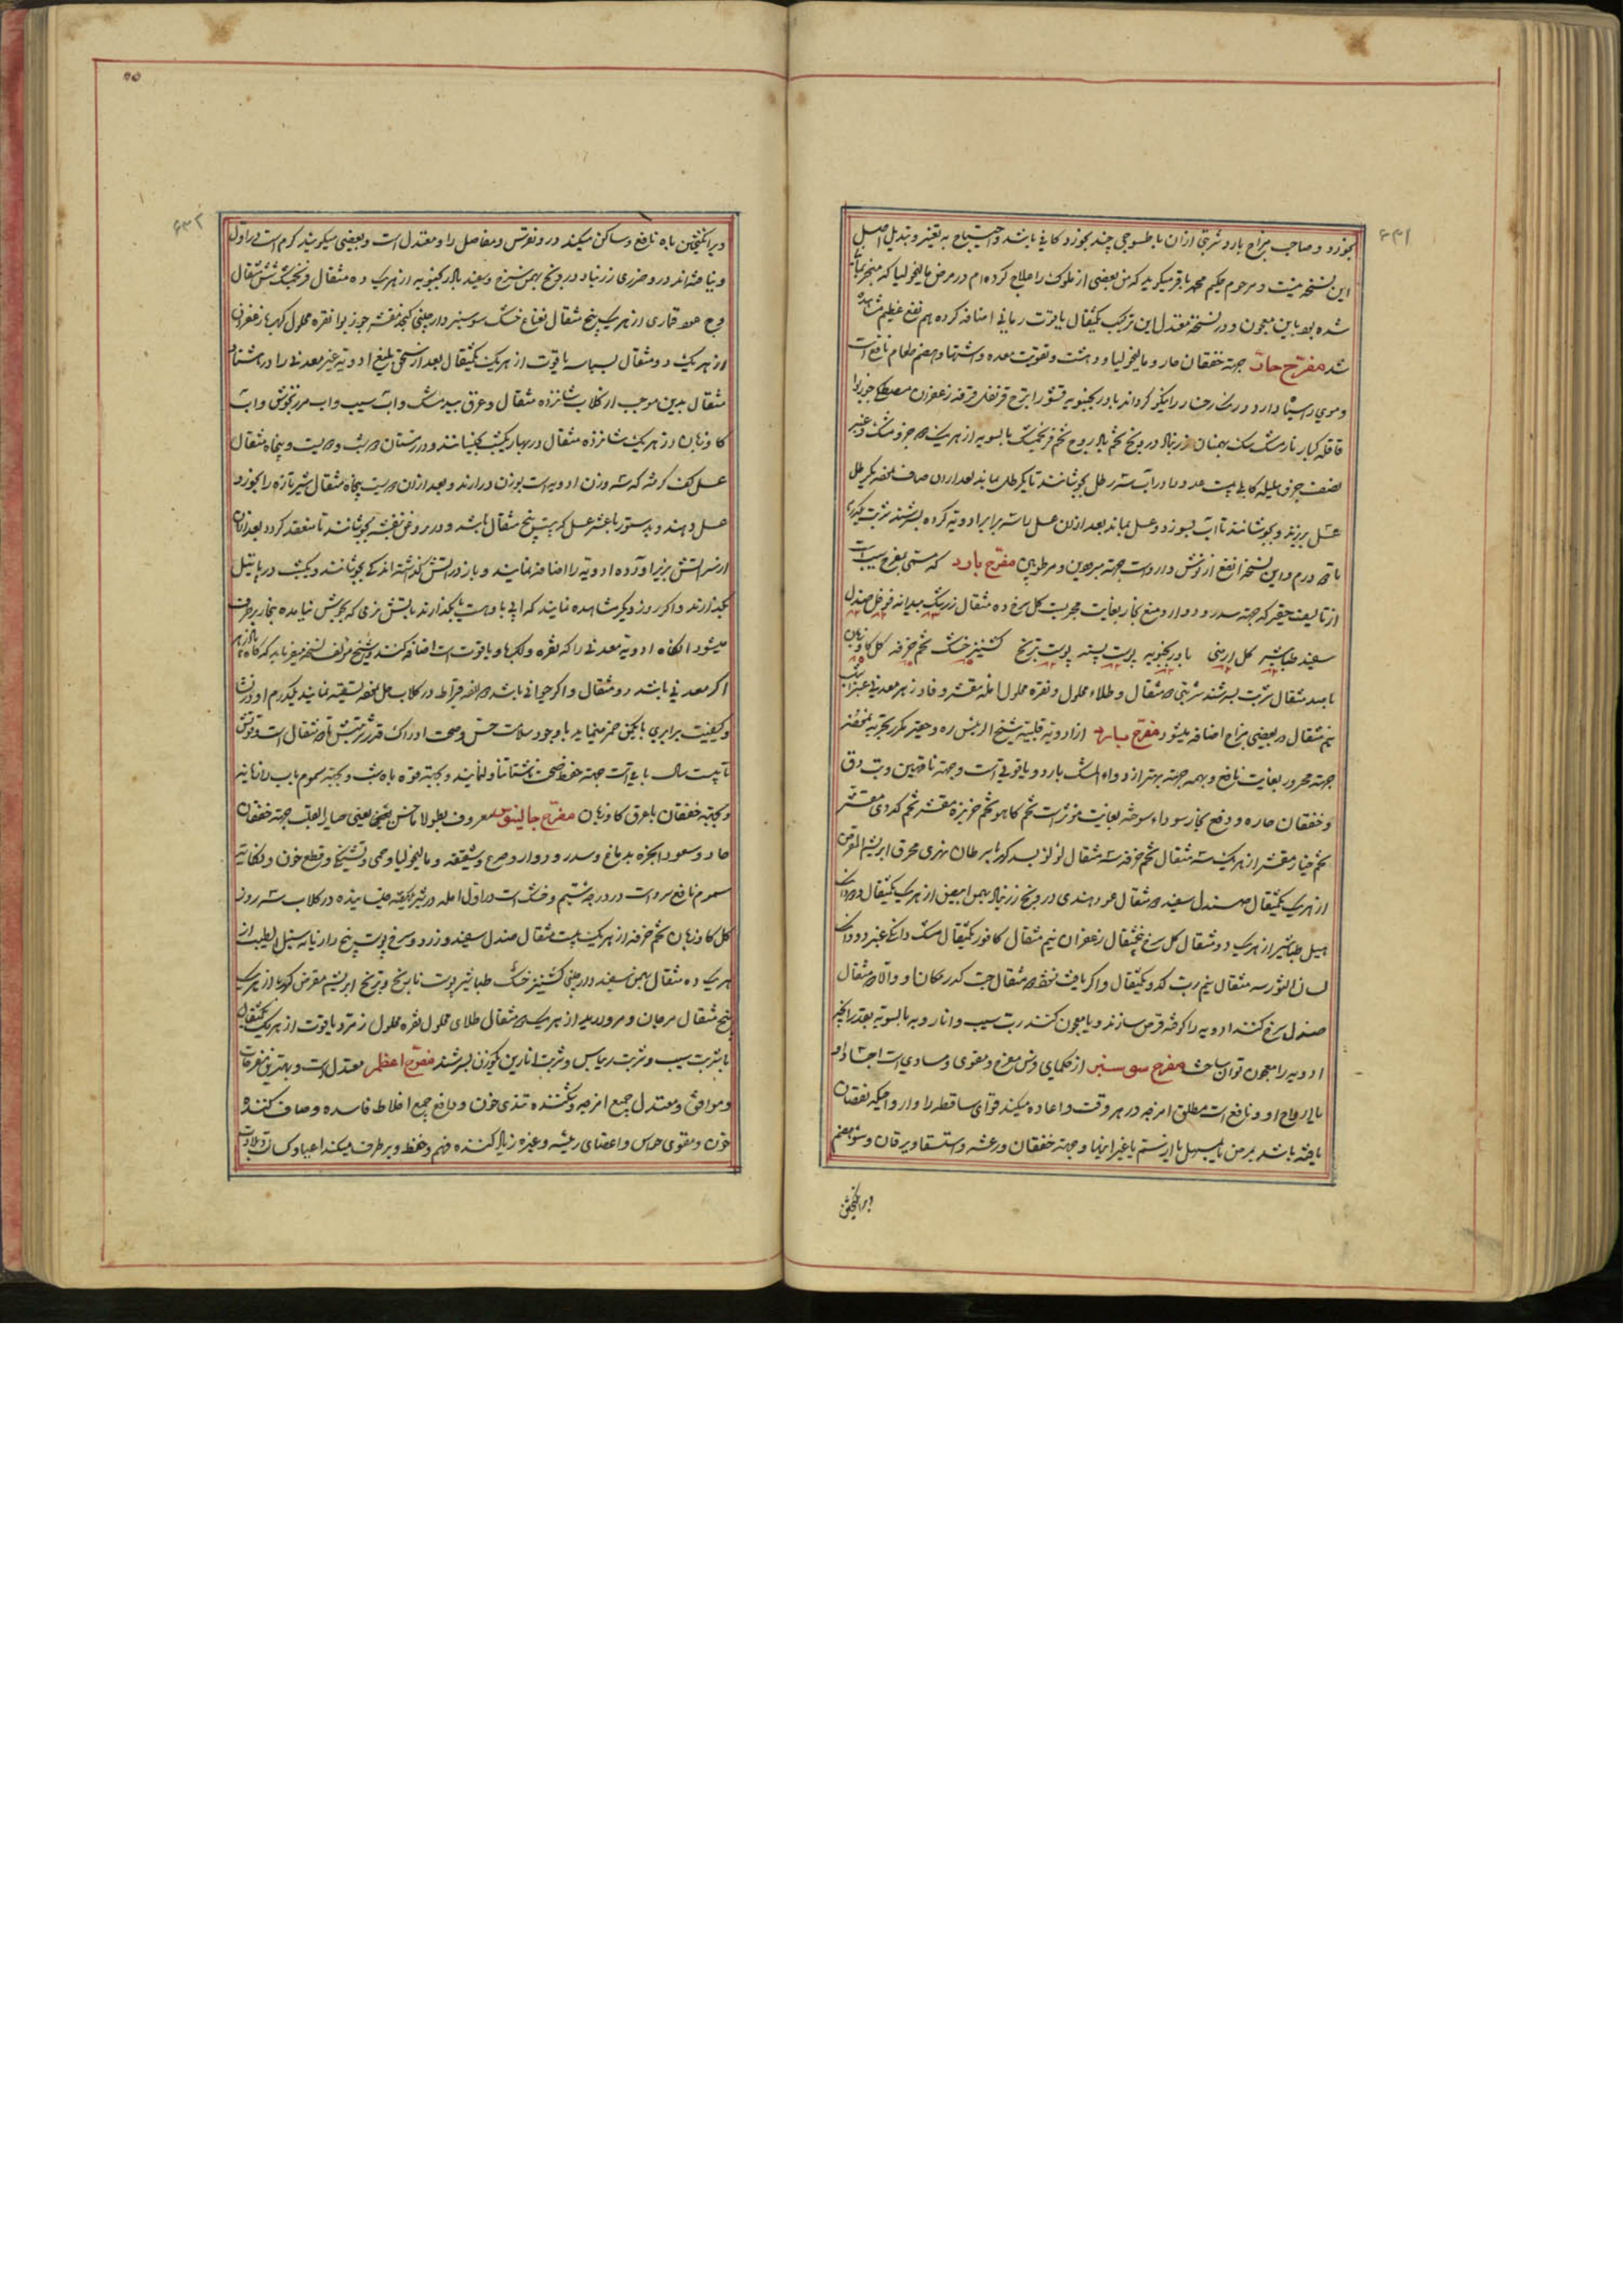 ۶۳۱
بخورد و صاحب مزاج بارد شربتی ازان با طسوجی چند بخورد کافی باشد و احتیاج به تغییر و تبدیل اصل
این نسخه نیست و مرحوم حکیم محمد باقر میکوید که من بعضی از ملوک را علاج کرده‌ام در مرض مالیخولیا که منجر
شده بود باین معجون و در نسخه معتدل این ترکیب یکمثقال یاقوت رمانی اضافه کرده‌ام نفع عظیم مشاهده
شد مفرح حار جهة خفقان حار و مالیخولیا و وحشت و تقویت معده و اشتها و هضم طعام نافع است
و موی را سیاه دارد و رنک رخسار را نیکو کرداند بادرنجبویه قشور اترج قرنفل قرفه زعفران مصطکی جوزبوا
قاقله کبار نارمشک بهمنان زرنباد درونج تخم بادروج تخم فرنجمشک بالسویه از هریک جزو مشک و عنبر
نصف جزو هلیله کابلی بیست عدد در آب سه رطل بجوشانند تا یکرطل بماند بعد ازان صاف نموده یکرطل
عسل بریزند و بجوشانند تا آب بسوزد و عسل بماند بعد ازان عسل با سه برابر ادویه کرده بسرشند شربت یکدرم
تا دو درم و این نسخه انفع از نوش داروست جهة مبرودین و مرطوبین مفرح بارد که مسمی بمفرح سیب است
از تالیف حقیر که جهة سدر و دوار و منع بخار بغایت مجربست کل سرخ ده مثقال زرشک بیدانه فوفل صندل
سفید طباشیر کل ارمنی بادرنجبویه پوست پسته پوست ترنج کشنیز خشک تخم خرفه کل کاوزبان
با صد مثقال شربت بسرشند شربتی دو مثقال و طلاء محلول و نقره محلول آمله مقشر و فادزهر معدنی عنبر اشهب
نیم مثقال در بعضی مزاج اضافه میشود مفرح بارد از ادویه قلبیه شیخ الرئیس ره و حقیر مکرر تجربه نموده
جهة محرور بغایت نافع و بهمه جهة بهتر از دواء المسک بارد و یاقوتی است و جهة ناقهین و تب دق
و خفقان حاره و دفع بخار سوداء سوخته بغایت مؤثر است تخم کاهو تخم خربزه مقشر تخم کدوی مقشر
تخم خیار مقشر از هریک سه مثقال تخم خرفه سه مثقال لؤلؤ بسد کهربا سرطان نهری محرق ابریشم مقرض
از هریک یکمثقال صندل سفید دو مثقال عود هندی درونج زرنباد بهمن ابیض از هریک یکمثقال
هیل طباشیر از هریک دو مثقال کل سرخ پنجمثقال زعفران نیم مثقال کافور یکمثقال مشک دانکی عنبر دو دانک
لسان الثور سه مثقال نیم رب کدو یکمثقال و اکر یافت نشود مثقال حب کدر مکان او والا دو مثقال
صندل سرخ کنند ادویه را کوفته قرص سازند و یا معجون کنند رب سیب و انار و به بالسویه بقدر آنچه
ادویه را معجون توان ساخت مفرح سوسنبر از حکمای فرس مفرح و مقوی و مساوی است اجساد
با ارواح او و نافع است مطلق امزجه در هر وقت و اعاده میکند قوای ساقطه را و ارواحی که نقصان
یافته باشد بمرض یا بمسهل یا از سم یا غیر اینها و جهة خفقان و رعشه و استسقا و یرقان و سوء هضم
و برانکیختن
۶۳۲
و برانکیختن باه نافع و ساکن میکند درد نقرس و مفاصل را و معتدل است و بعضی میکویند کرم است در اول
و نیافته‌اند در و ضرری زرنباد درونج بهمن سرخ و سفید بادرنجبویه از هریک ده مثقال فرنجمشک شش مثقال
وج عود قماری از هریک پنج مثقال نعناع خشک سوسنبر دارچینی کنجد مقشر جوزبوا نقره محلول کهربا زعفران
از هریک دو مثقال بسباسه یاقوت از هریک یکمثقال بعد از سحق بلیغ ادویه غیر معدنی را در هشتاد
مثقال بدین موجب از کلاب شانزده مثقال و عرق بیدمشک و آب سیب و آب مرزنجوش و آب
کاوزبان از هریک شانزده مثقال در بهار یکشب بخیسانند و در زمستان دو شب و دویست و پنجاه مثقال
عسل کف کرفته که سه وزن ادویه است بوزن درآرند و بعد ازان دویست پنجاه مثقال شیر تازه را بخورد
عسل دهند و بدستور با عنبر عسل که بیست پنج مثقال باشد و در روغن بنفشه بجوشانند تا منعقد کردد بعد ازان
از سر آتش بزیر آورده ادویه را اضافه نمایند و باز در آتش کذاشته اندکی بجوشانند و یکشب در پاتیل
بکذارند و اکر روز دیکر مشاهده نمایند که آبی با اوست بکذارند بآتش نرمی که بجوش نیامده بخار برطرف
میشود آنکاه ادویه معدنی را که نقره و کهربا و یاقوت است اضافه کنند و شیخ مؤلف نسخه میفرماید که کاه پادزهر
اکر معدنی باشد دو مثقال و اکر حیوانی باشد دو قیراط در کلاب حل نموده تسقیه نمایند یکدرم او در نشاط
و کیفیت برابری با یکمن خمر مینماید با وجود سلامت حس و صحت ادراک قدر شربتش تا دو مثقال است و قوتش
تا بیست سال باقی است جهة حفظ صحت ناشتا تناول نمایند و بجهة قوه باه شب و بجهة سموم بآب رازیانه
و بجهة خفقان با عرق کاوزبان مفرح جالینوس معروف بطولا ماخس یعنی صابر القلب جهة خفقان
حار و صعود ابخره بدماغ و سدر و دوار و صرع و شقیقه و مالیخولیا و حمی و تشنج و قطع خون و نکایت
سموم نافع سرد است در درجه سیم و خشک است در اول آمله در شیر یکهفته خیسانیده در کلاب سه روز
کل کاوزبان تخم خرفه از هریک بیست مثقال صندل سفید و زرد و سرخ پوست ترنج رازیانه سنبل الطیب از
هریک ده مثقال بهمن سفید دارچینی کشنیز خشک طباشیر پوست نارنج و ترنج ابریشم مقرض کهربا از هریک
پنج مثقال مرجان و مروارید از هریک دو مثقال طلای محلول نقره محلول زمرد یاقوت از هریک یکمثقال
با شربت سیب و شربت ریباس و شربت انارین یکوزن بسرشند مفرح اعظم معتدل است و بهترین مفرحات
و موافق و معتدل جمیع امزجه و شکننده تندی خون و دافع جمیع اخلاط فاسده و صاف کننده
خون و مقوی حواس و اعضای رئیسه و غیره زیاد کننده فهم و حفظ و برطرف میکند اعیا و کسل و بلادت